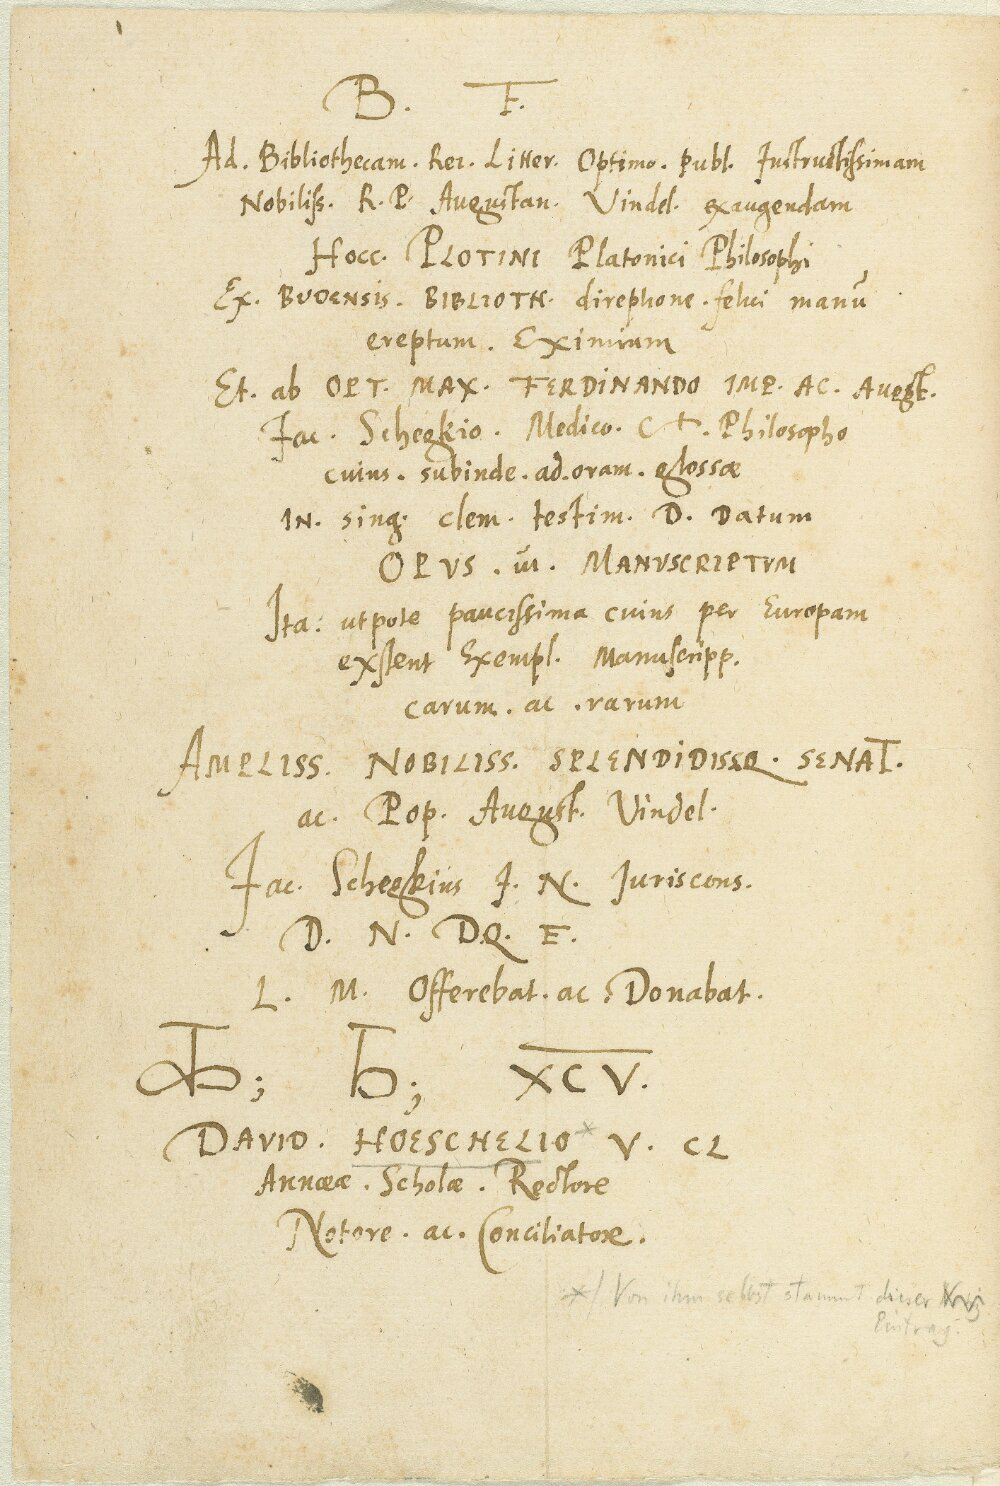 B. F.
Ad. Bibliothecam. Rei. Litter. Optimo. publ. Instructissimam
Nobiliss. R. P. Augustan. Vindel. exaugendam
Hocc. PLOTINI Platonici Philosophi
Ex. BUDENSIS. BIBLIOTH. direptione. felici manu
ereptum. Eximium
Et. ab OPT. MAX. FERDINANDO IMP. AC. Augt.
Jac. Schegkio. Medico. Philosopho
cuius. subinde. ad. oram. glossæ
IN. sing. clem. testim. D. Datum
OPUS. MANUSCRIPTUM
Ita: utpote paucissima cuius per Europam
exstent Exempl. Manuscripp.
carum. ac. rarum
AMPLISS. NOBILISS. SPLENDIDISSQ. SENAT.
ac. Pop. August. Vindel.
Jac. Schegkius J. N. Juriscons.
D. N. D.Q. E.
L. M. Offerebat. ac Donabat.
XCV.
DAVID. HOESCHELIO * V. CL
Annææ. Scholæ. Rectore
Notore. ac. Conciliatore.
*/ Von ihm selbst stammt dieser
Eintrag.